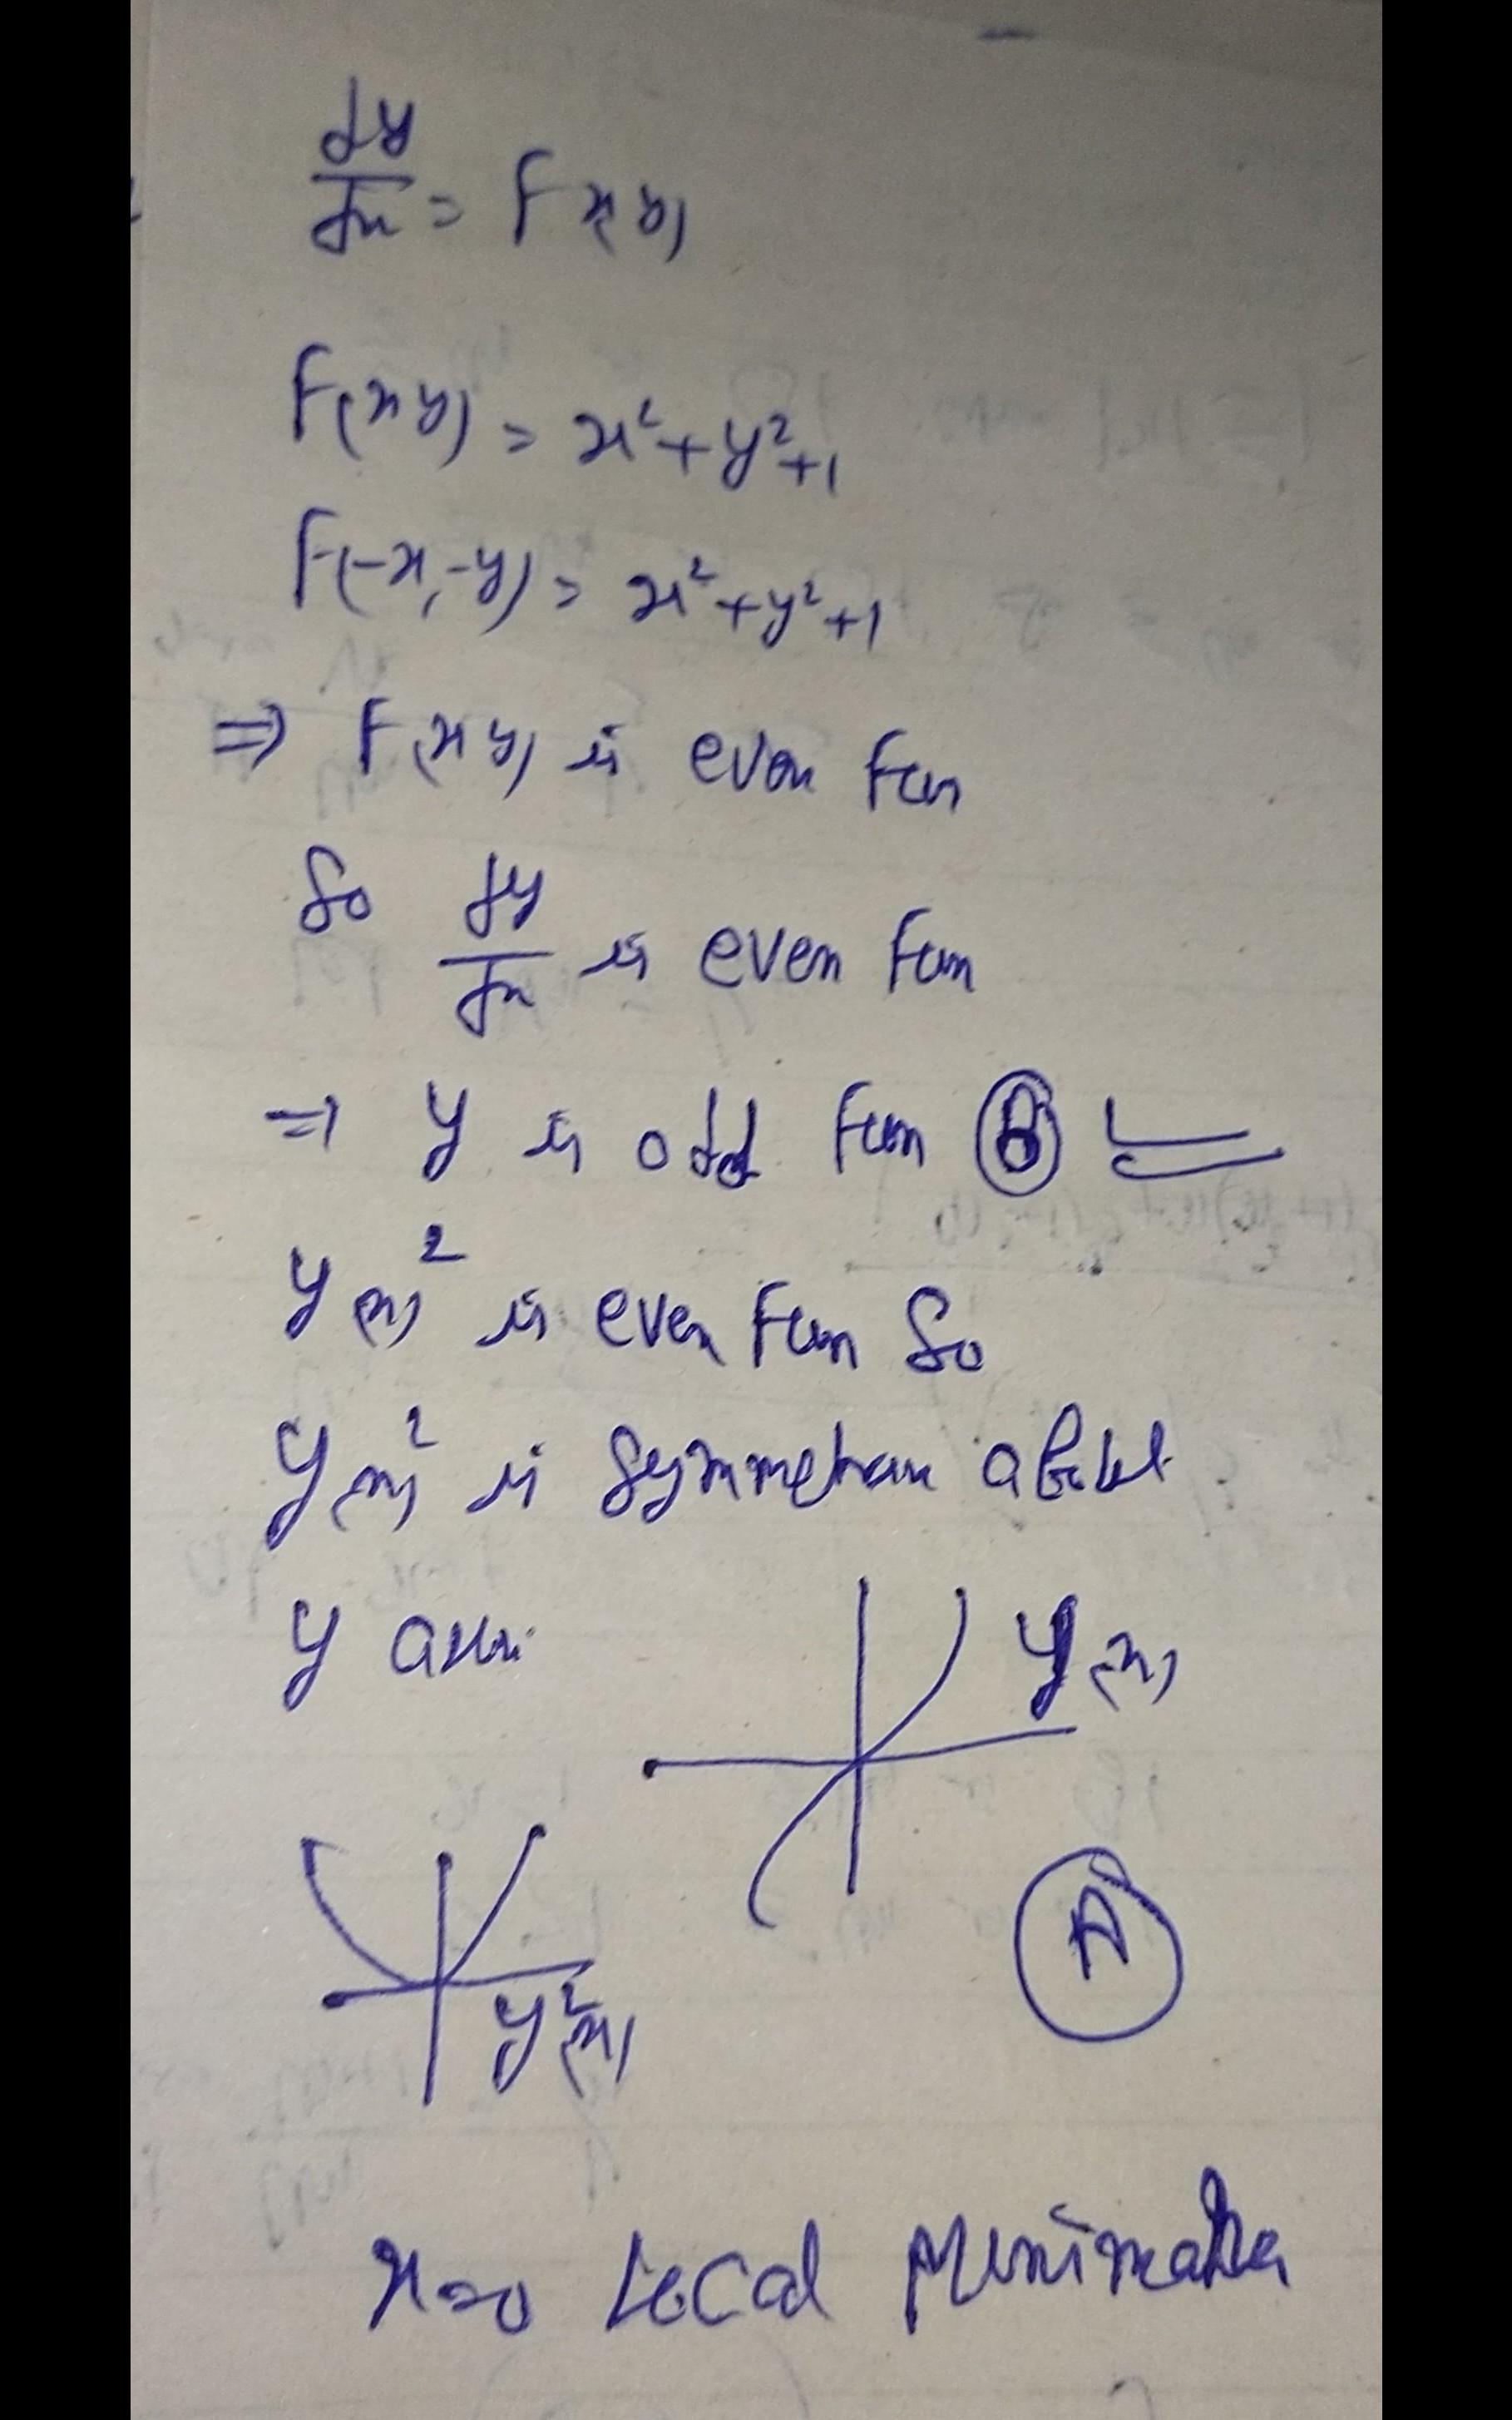 dy/dx = F(x,y)
F(x y) = x²+y²+1
F(-x,-y) = x²+y²+1
⇒ F(x y) is even Fun
So dy/dx is even Fun
⇒ y is odd Fun Ⓑ
y(x)² is even Fun So
y(x)² is symmetric about
y axis
y(x)
y²(x)
Ⓐ
x=0 Local Minima